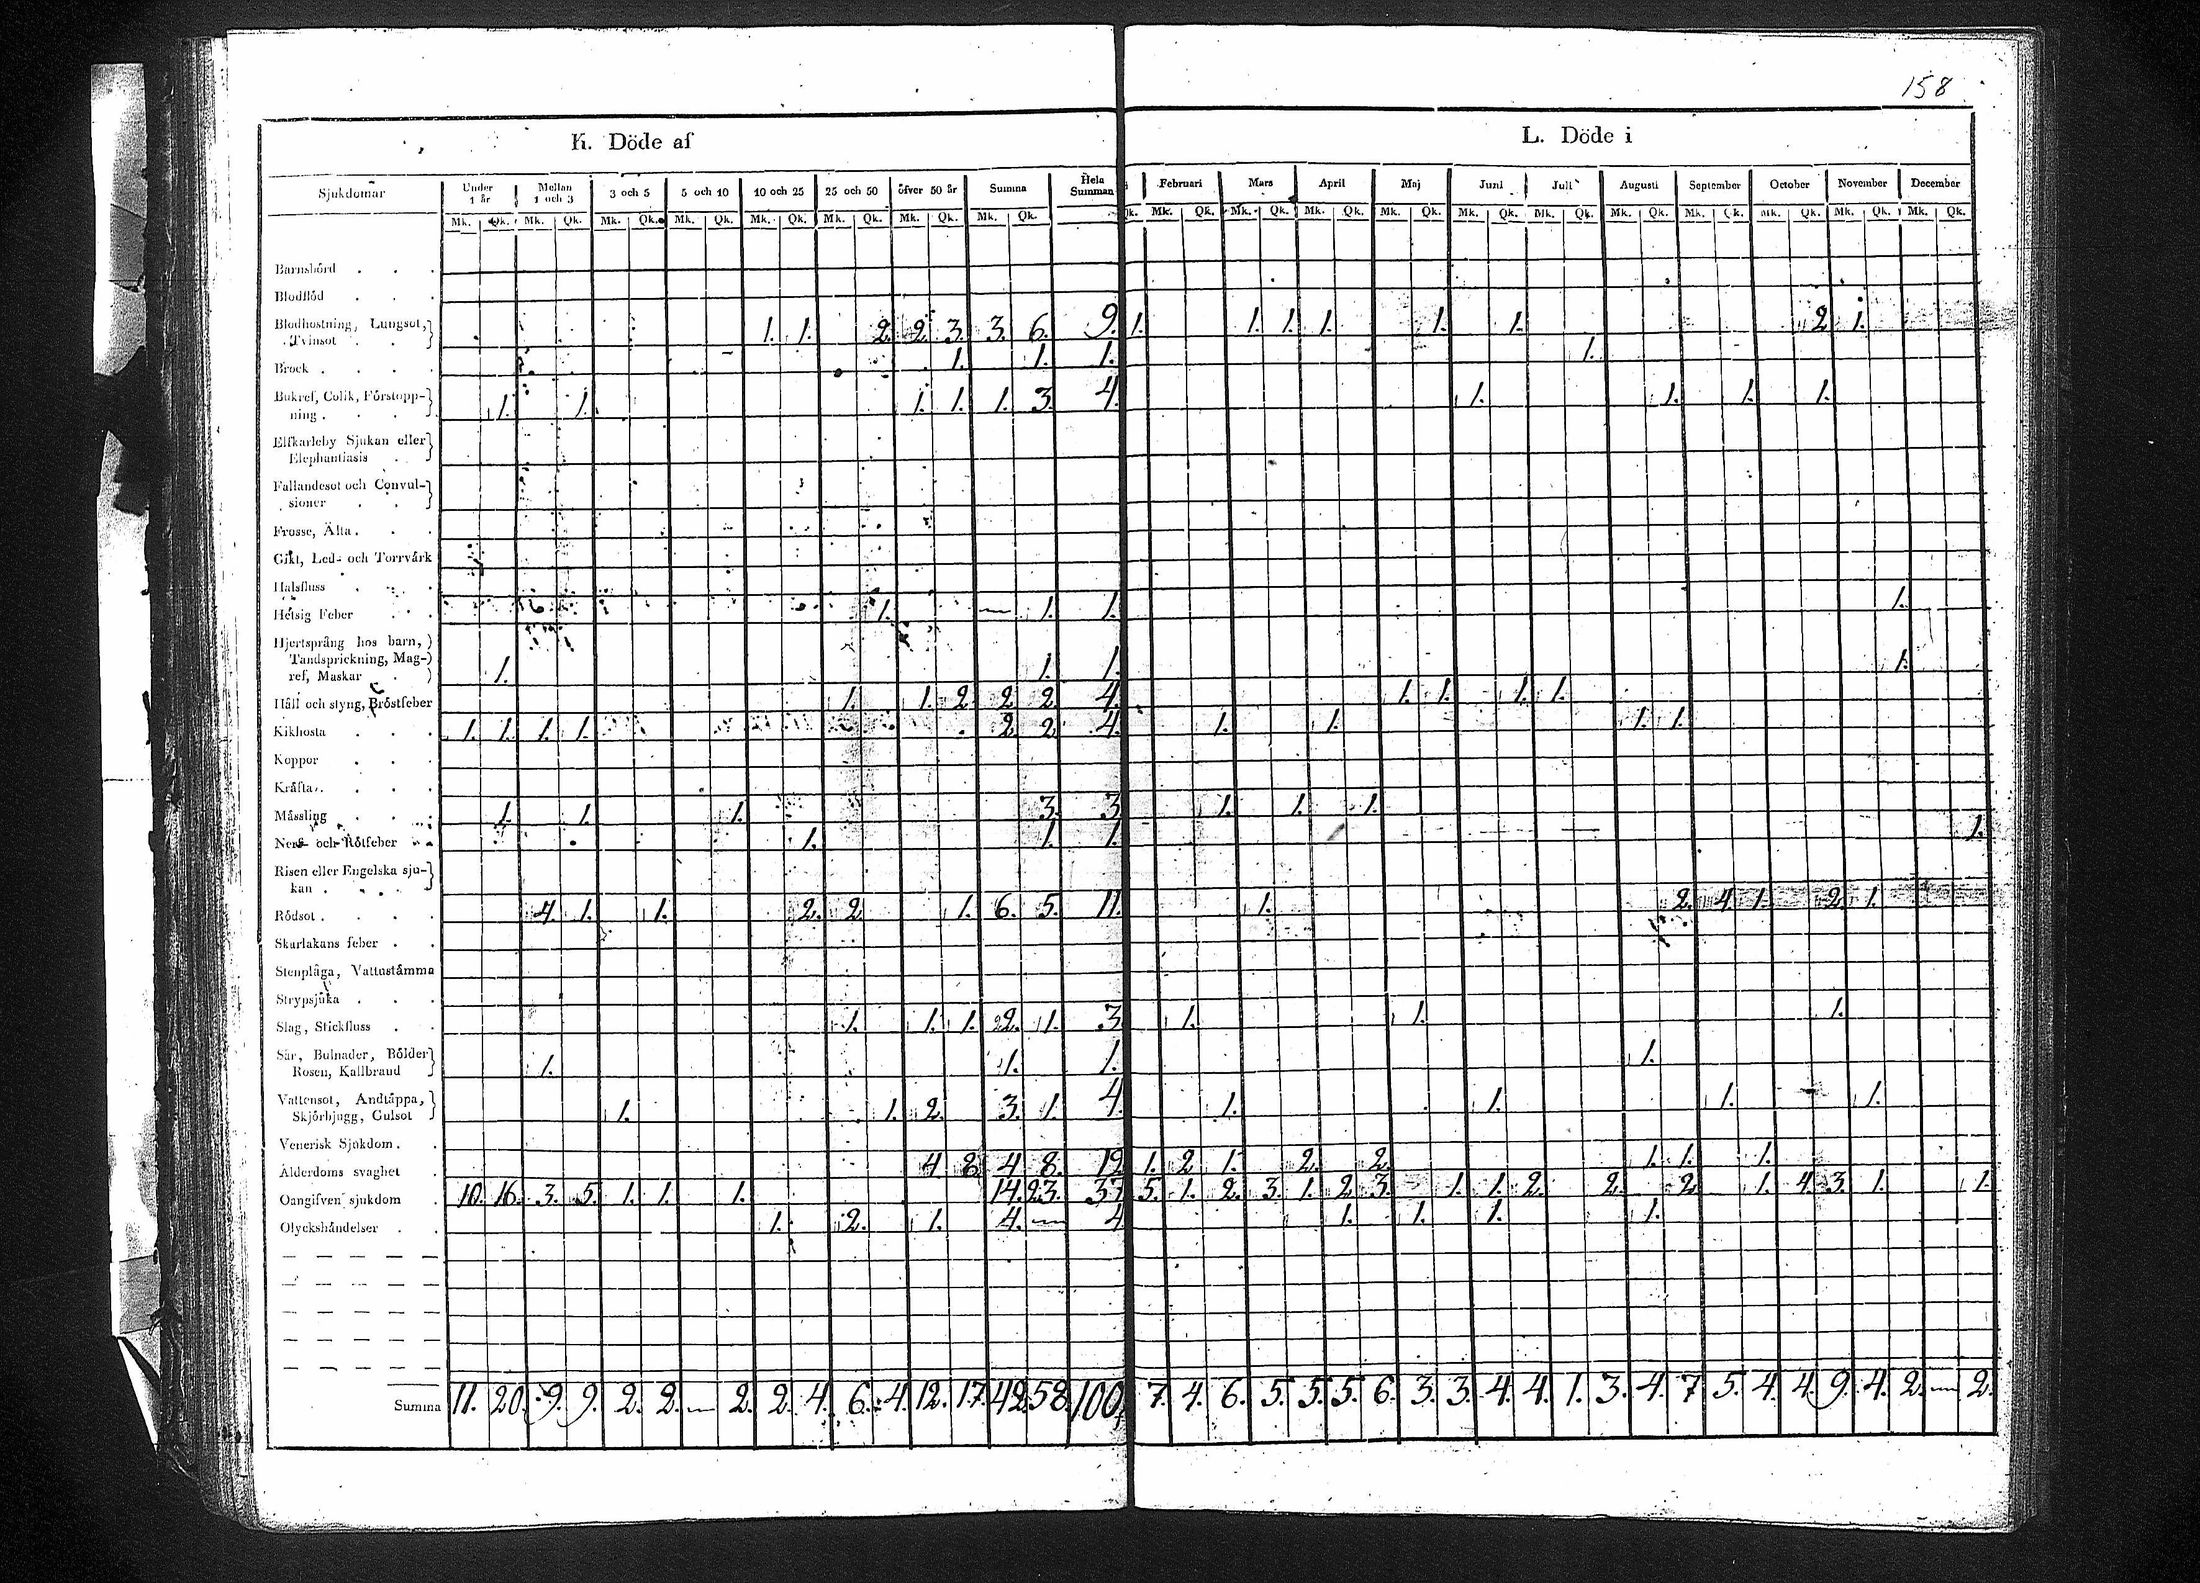 158
K. Döde af L. Döde i
Sjukdomar Under 1 år Mellan 1 och 3 3 och 5 5 och 10 10 och 25 25 och 50 öfver 50 år Summa Hela Summan Februari Mars April Maj Juni Juli Augusti September October November December
Mk. Qk. Mk. Qk. Mk. Qk. Mk. Qk. Mk. Qk. Mk. Qk. Mk. Qk. Mk. Qk. Qk. Mk. Qk. Mk. Qk. Mk. Qk. Mk. Qk. Mk. Qk. Mk. Qk. Mk. Qk. Mk. Qk. Mk. Qk. Mk. Qk. Mk. Qk.
Barnsbörd . . .
Blodflöd . . .
Blodhostning, Lungsot,
Tvinsot . . 1. 1. 2. 2. 3. 3. 6. 9. 1. 1. 1. 1. 1. 1. 2. 1.
Brock . . . . 1. 1. 1. 1.
Bukref, Colik, Förstopp-
ning . . . 1. 1. 1. 1. 1. 3. 4. 1. 1. 1. 1.
Elfkarleby Sjukan eller
Elephantiasis .
Fallandesot och Convul-
sioner . .
Frosse, Älta . . .
Gikt, Led- och Torrvärk
Halsfluss . . .
Hetsig Feber . . 1. — 1. 1. 1.
Hjertsprång hos barn,
Tandsprickning, Mag-
ref, Maskar . 1. 1. 1. 1.
Håll och styng, Bröstfeber 1. 1. 2. 2. 2. 4. 1. 1. 1. 1.
Kikhosta . . . 1. 1. 1. 1. 2. 2. 4. 1. 1. 1. 1.
Koppor . . .
Kräfta . . . .
Mässling . . . 1. 1. 1. 3. 3. 1. 1. 1.
Nerf- och Rötfeber 1. 1. 1. 1.
Risen eller Engelska sju-
kan . . . .
Rödsot . . . . 4. 1. 1. 2. 2. 1. 6. 5. 11. 1. 2. 4. 1. 2. 1.
Skarlakans feber . .
Stenplåga, Vattustämma
Strypsjuka . . .
Slag, Stickfluss . . 1. 1. 1. 2. 1. 3. 1. 1. 1.
Sår, Bulnader, Bölder
Rosen, Kallbrand 1. 1. 1. 1.
Vattensot, Andtäppa,
Skjörbjugg, Gulsot 1. 1. 2. 3. 1. 4. 1. 1. 1. 1.
Venerisk Sjukdom . .
Ålderdoms svaghet . 4. 8. 4. 8. 12. 1. 2. 1. 2. 2. 1. 1. 1.
Oangifven sjukdom . 10. 16. 3. 5. 1. 1. 1. 14. 23. 37. 5. 1. 2. 3. 1. 2. 3. 1. 1. 2. 2. 2. 1. 4. 3. 1. 1.
Olyckshändelser . . 1. 2. 1. 4. — 4. 1. 1. 1. 1.
Summa 11. 20. 9. 9. 2. 2. — 2. 2. 4. 6. 4. 12. 17. 42. 58. 100. 7. 4. 6. 5. 5. 5. 6. 3. 3. 4. 4. 1. 3. 4. 7. 5. 4. 4. 9. 4. 2. — 2.